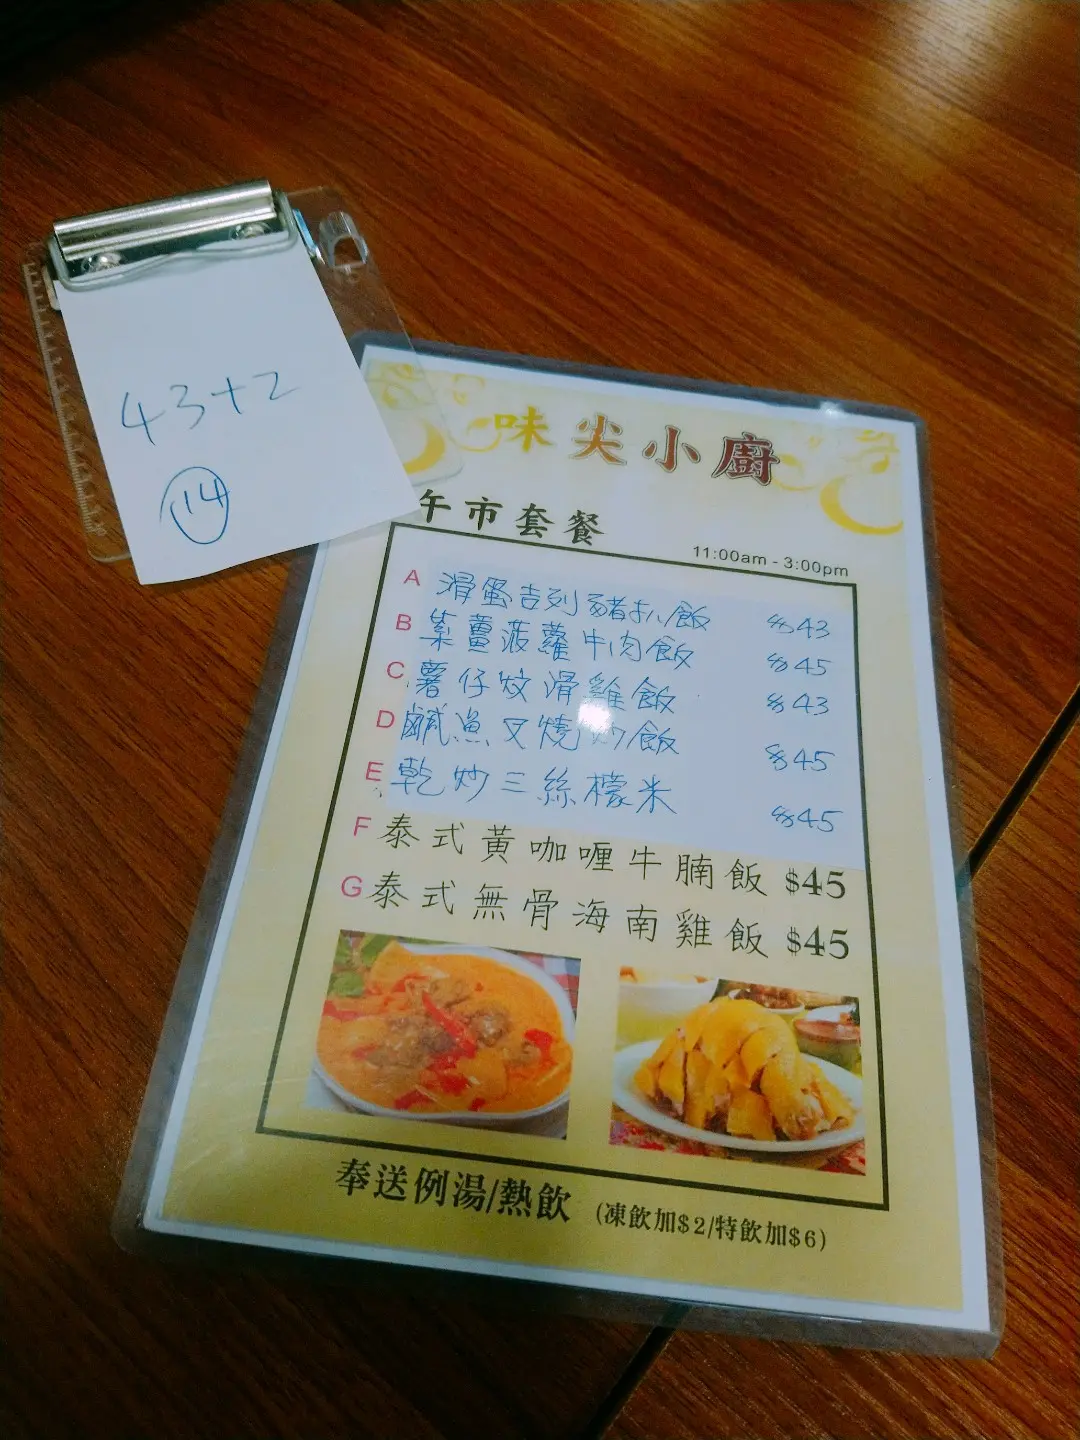 43+2
14
味尖小廚
午市套餐
11:00am - 3:00pm
A 滑蛋吉列豬扒飯 $43
B 紫薑菠蘿牛肉飯 $45
C 薯仔炆滑雞飯 $43
D 鹹魚叉燒炒飯 $45
E 乾炒三絲檬米 $45
F 泰式黃咖喱牛腩飯 $45
G 泰式無骨海南雞飯 $45
奉送例湯/熱飲 (凍飲加$2/特飲加$6)